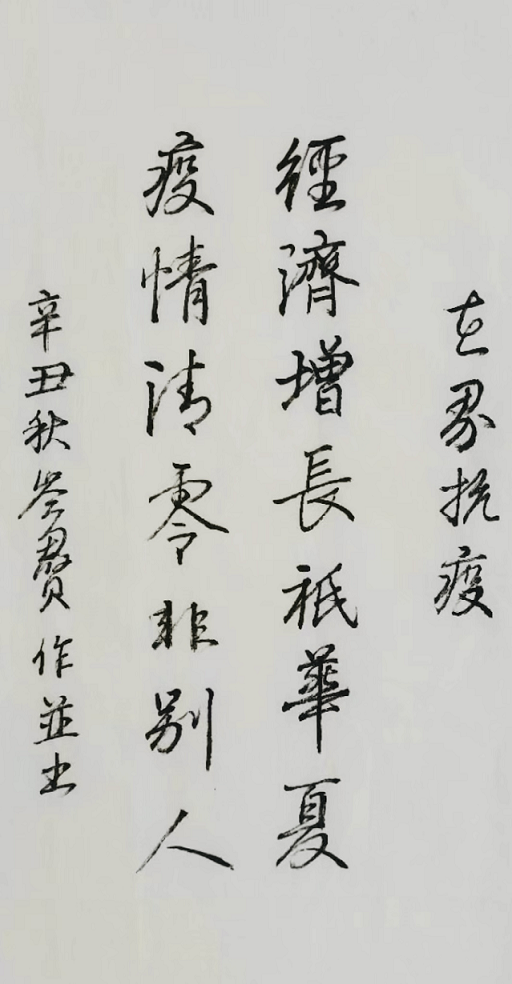 世界抗疫
經濟增長祇華夏
疫情清零非別人
辛丑秋岑賢作並书